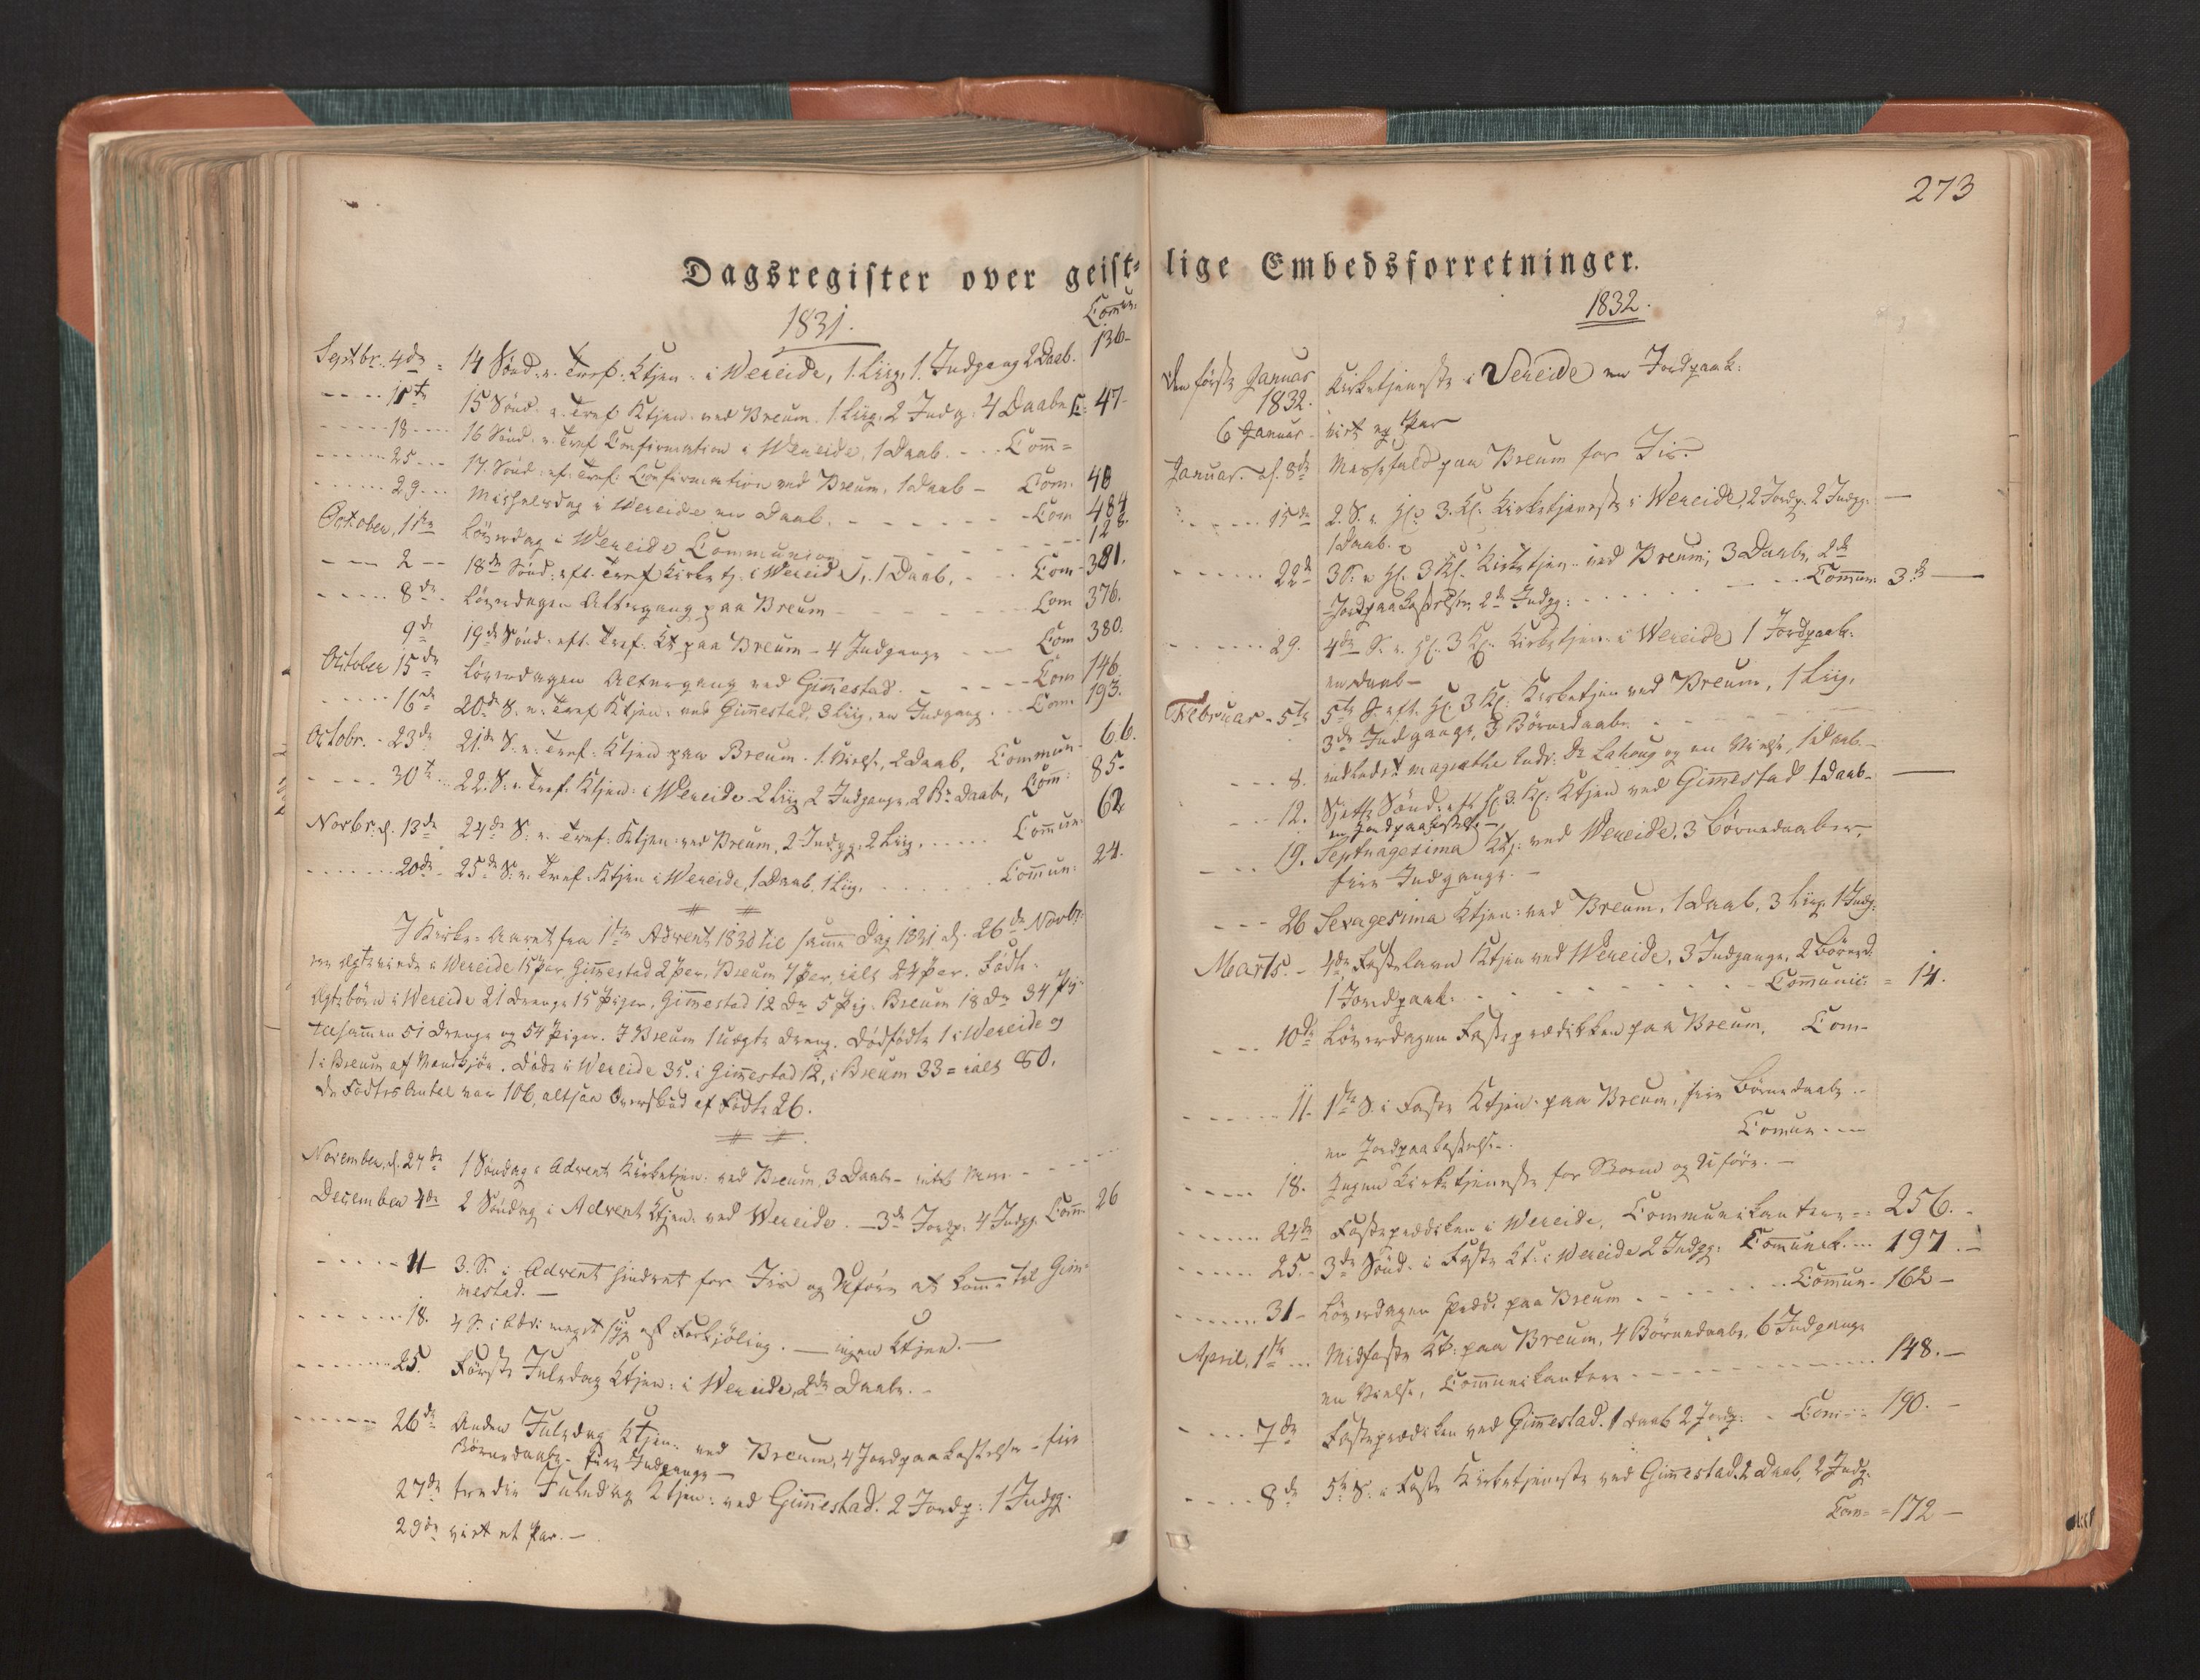 273
Dagsregister over geist-
lige Embedsforretninger.
1831.
Comun:
Septbr. 4de = 14 Sønd. e. Tref. Ktjen. i Wereide, 1. Liig, 1. Indgang 2 Daab. 136-
11te 15 Sønd. e. Tref Ktjen. ved Breum. 1. Liig. 2 Indg. 4 Daabe C: 47-
18 16 Sønd. e. Tref Confirmation i Wereide, 1 Daab. Com =
25 17. Sønd. ef. Tref. Confirmation ved Breum, 1 Daab - Com. 40
29 Michelsdag i Wereide en Daab. Com 484
October, 1ste Løverdag i Wereide Communion 128.
2 18de Sønd. eft. Tref Kirketj. i Wereide, 1 Daab. Com 381.
8de Løverdagen Altergang paa Breum Com 376.
9de 19de Sønd. eft. Tref. Kt paa Breum - 4 Indgange Com 380.
October 15de Løverdagen Altergang ved Gim̅estad. Com 146
16de 20de S. e. Tref Ktjen. ved Gim̅estad, 3 Liig, en Indgang. Com. 193.
Octobr. - 23de 21de S. e. Tref. Ktjen paa Breum. 1. Vielse, 2 Daab, Commun. 66.
30te 22. S. e. Tref. Ktjen. i Wereide 2 Liig 2 Indgange, 2 Br. Daab, Com̅: 85-
Novbr. d. 13de 24de S. e. Tref. Ktjen. ved Breum, 2 Indgg. 2 Liig. Com̅un: 62
20de 25de S. e. Tref. Ktjen i Wereide, 1 Daab. 1 Liig. Com̅un: 24.
I Kirke-Aaret fra 1ste Advent 1830 til sam̅e Dag 1831 d. 26de Novbr:
ere Egteviede i Wereide 15 Par, Gim̅estad 2 Par, Breum 7 Par, ialt 24 Par. Fødte
Egtebørn i Wereide 21 Drenge 15 Piger, Gim̅estad 12 Dr. 5 Pig. Breum 18 Dr. 34 Pig.
tilsam̅en 51 Drenge og 54 Piger. I Breum 1 uegte Dreng. Dødfødte 1 i Wereide og
1 i Breum af Mandkjøn. Døde i Wereide 35. i Gim̅estad 12, i Breum 33 = ialt 80.
De Fødtes Antal var 106, altsaa Overskud af Fødte 26.
November, d. 27de 1 Søndag i Advent Kirketjen. ved Breum, 3 Daabe - intet mere
December 4de 2 Søndag i Advent Ktjen. ved Wereide. - 3de Jordp. 4 Indgg. Com̅. 26
11 3. S. i Advent hindret for Iis og Uføre at kom̅e til Gim-
mestad. -
18. 4 S. i Adv. meget syg af Forkjøling. - ingen Ktjen. -
25. Første Juledag Ktjen: i Wereide, 2de Daabe. -
26de Anden Juledag Ktjen. ved Breum, 4 Jordpaakastelser - fire
Børnedaabe. fire Indgange -
27de tredie Juledag Ktjen: ved Gim̅estad. 2 Jordp: 1 Indgg.
29de viet et Par. -
1832.
Den første Januar Kirketjeneste i Vereide en Jordpaak:
1832.
6 Januar - viet et Par
Januar. d. 8de Messefald paa Breum for Iis.
15de 2. S. e. H. 3. K. Kirketjeneste i Wereide, 2 Jordp. 2 Indgg.
1 Daab.
22de 3 S. e H. 3 K. Kirketjen. ved Breum, 3 Daabe, 2de
Jordpaakastelser. 2de Indgg: Com̅un 3de
29. 4de S. e. H. 3 K. Kirketjen: i Wereide 1 Jordpaak.
en Daab -
Februar - 5te 5te S. eft. H. 3 K. Kirketjen ved Breum, 1 Liig.
3de Indgange, 3 Børnedaabe.
8. indledet Magrethe og en Vielse, 1 Daab -
12. Sjette Sønd. eft H. 3. K. Ktjen ved Gim̅estad 1 Daab -
en Jordpaakastelse -
19. Septuagesima Ktj. ved Wereide, 3 Børnedaaber,
fire Indgange. -
26 Sexagesima Ktjen: ved Breum, 1 Daab, 3 Liig. 1 Indg.
Marts. - 4de Fastelavn Ktjen ved Wereide, 3 Indgange, 2 Børned.
1 Jordpaak. Com̅unic: = 14.
10de Løverdagen Fasteprædikken paa Breum. Com-
11. 1ste S. i Faste Ktjen. paa Breum, fire Børnedaabe. -
Comun. -
en Jordpaakastelse. -
18. Ingen Kirketjeneste for Storm og Uføre. -
24de Fasteprædiken i Wereide, Communikantere = 256. -
25. 3de Sønd. i Faste Kt. i Wereide 2 Indgg: Com̅unik. 197. -
31 - Løverdagen Præd. paa Breum Com̅un. 162 -
April, 1ste Midfaste Kt. paa Breum, 4 Børnedaabe, 6 Indgange
en Vielse, Com̅unikantere 148. -
7de Fasteprædiken ved Gim̅estad. 1 Daab 2 Jordp. Com 190. -
8de 5te S. i Faste Kirketjeneste ved Gim̅estad. 2 Daab, 2 Indg.
Com = 172 -